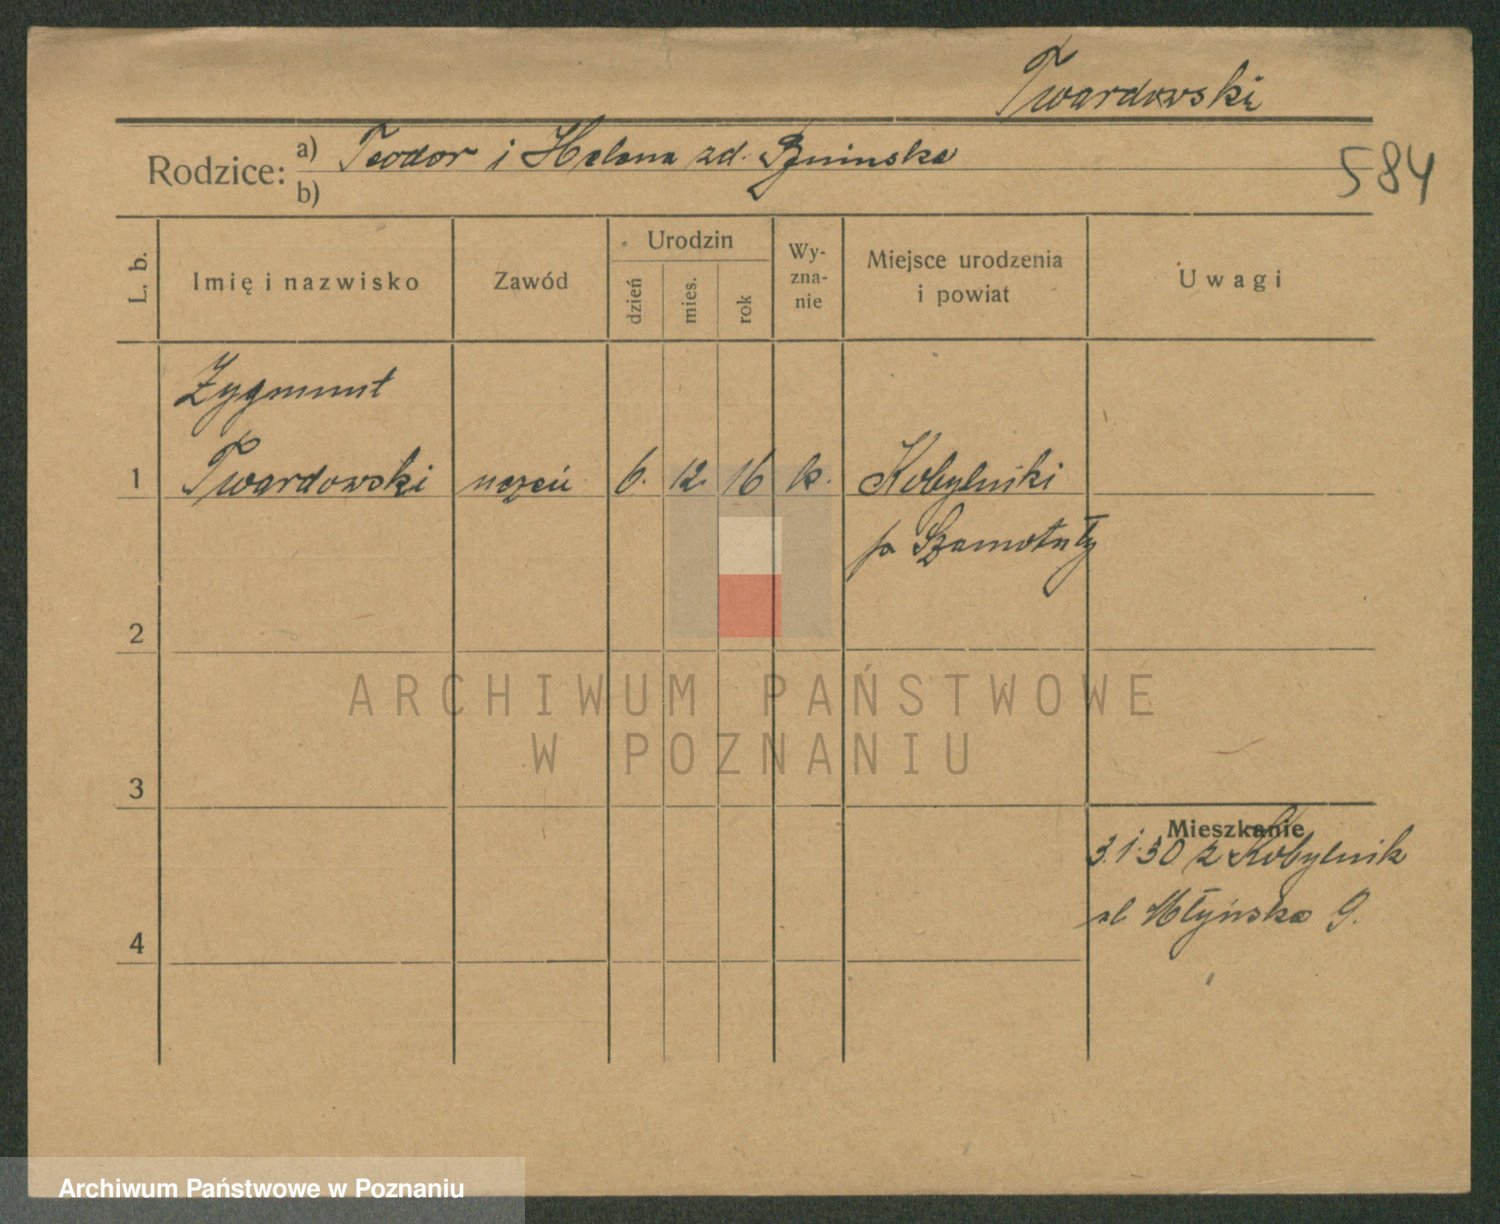 Twardowski
Rodzice: a) Teodor i Helena zd. Bnińska
b)
584
L. b.
Imię i nazwisko
Zawód
Urodzin
dzień
mies.
rok
Wy-
zna-
nie
Miejsce urodzenia
i powiat
Uwagi
Zygmunt
1 Twardowski uczeń 6. 12. 16 k. Kobylniki
p. Szamotuły
2
ARCHIWUM PAŃSTWOWE
W POZNANIU
3
Mieszkanie
3.1.30 z Kobylnik
ul Młyńska 9.
4
Archiwum Państwowe w Poznaniu